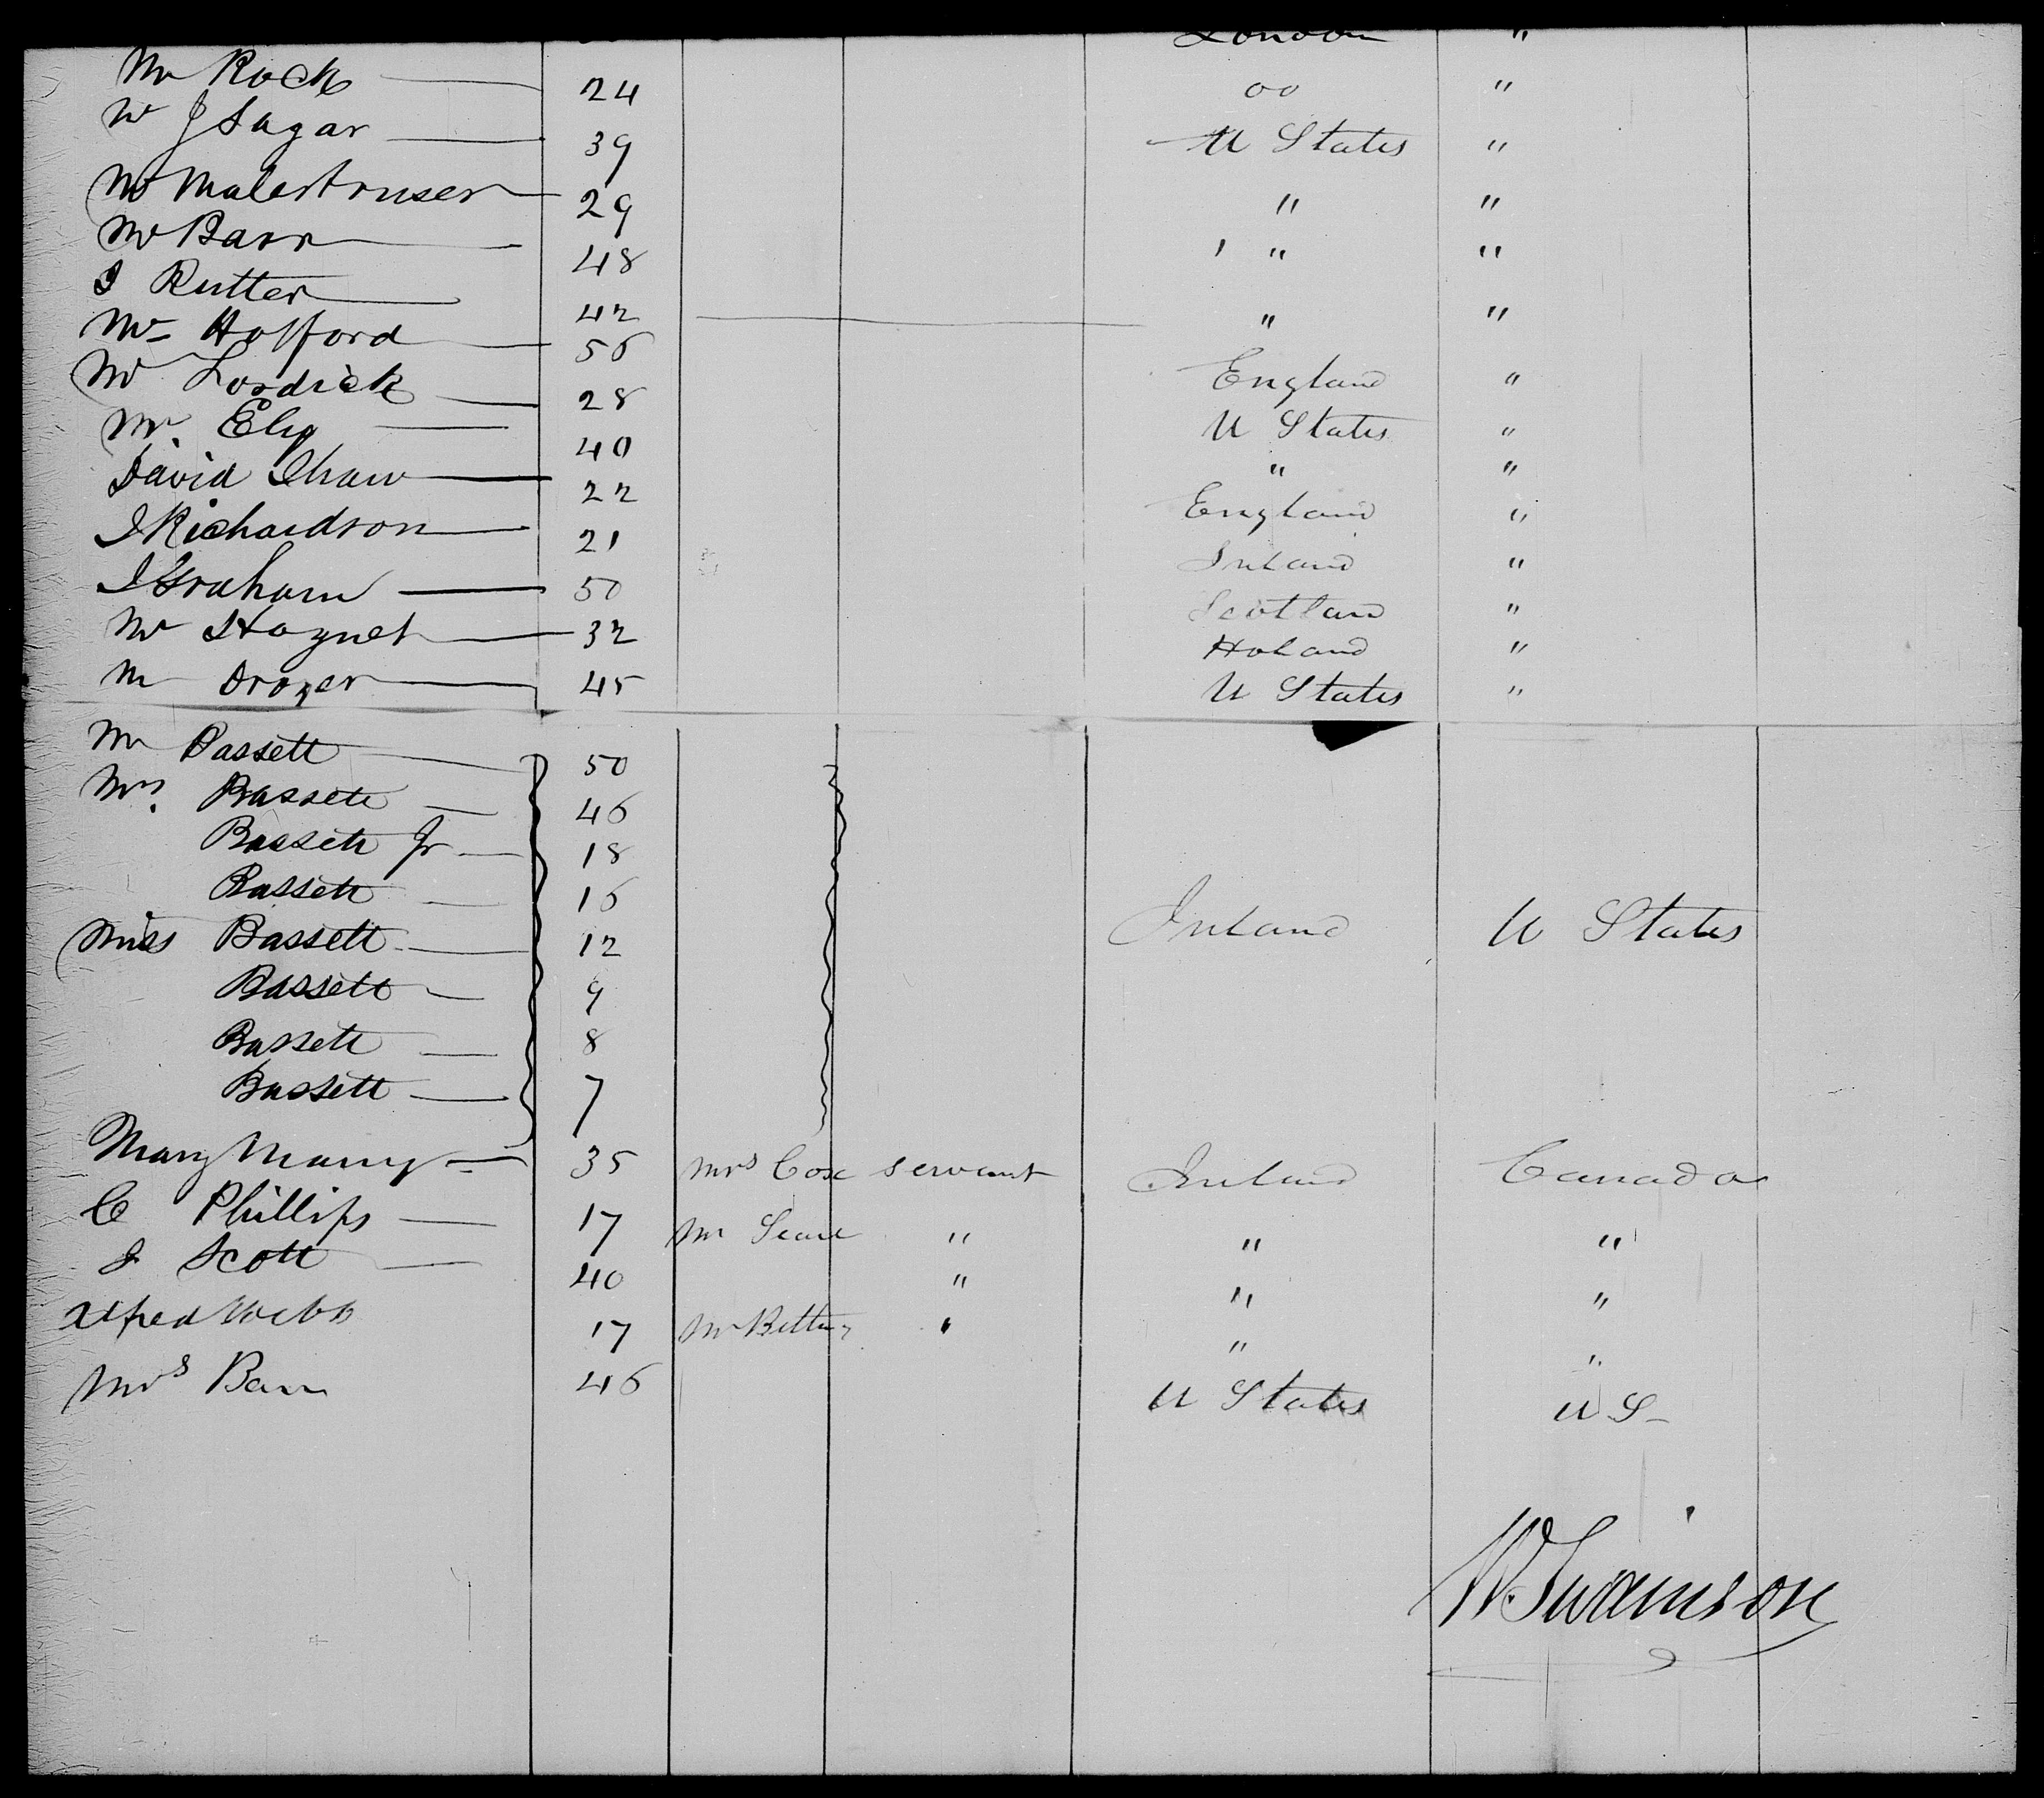 London "
Mr Rock 24 do "
W J Sagar 39 U States "
Mr 29 " "
Mr Barr 48 " "
J Rutter 42 " "
Mr Hofford 56 England "
Mr Lordrick 28 U States "
Mr Ely 40 " "
David Shaw 22 England "
J Richardson 21 Ireland "
J Graham 50 Scotland "
Mr 32 Holand "
Mr 45 U States "
Mr Bassett 50
Mrs Bassett 46
Bassett Jr 18
Bassett 16
Miss Bassett 12 Ireland U States
Bassett 9
Bassett 8
Bassett 7
Mary 35 Mrs Cox servant Ireland Canada
C Phillips 17 Mr " " "
J Scott 40 " " "
Alfred Webb 17 Mr " " "
Mrs Barr 46 U States U S
W. Swainson